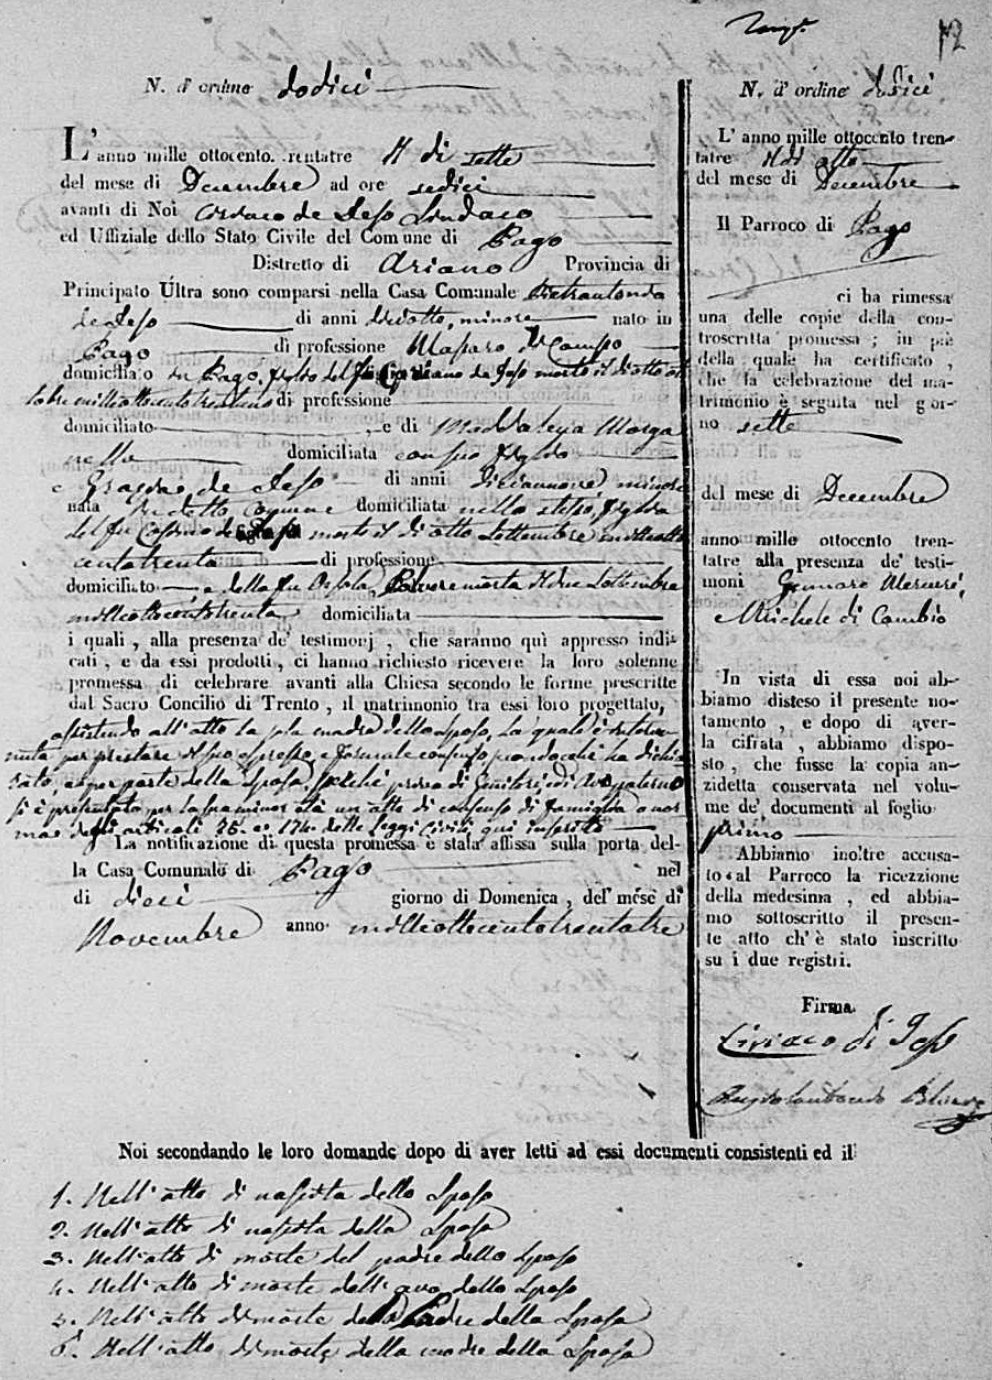 12
N. d'ordine dodici
L'anno mille ottocento trentatre il di sette
del mese di Decembre ad ore sedici
avanti di Noi Ciriaco de Jeso Sindaco
ed Uffiziale dello Stato Civile del Comune di Pago
Distretto di Ariano Provincia di
Principato Ultra sono comparsi nella Casa Comunale Pietrantonio
de Jeso di anni diciotto, minore nato in
Pago di professione
domiciliato in Pago, figlio del fu Cipriano de Jeso morto il di otto ot
tobre milleottocentotrentuno di professione
domiciliato , e di Maddalena Morga
nella domiciliata con suo figlio
e Grazia de Jeso di anni diciannove minore
nata in detto Comune domiciliata nello stesso, figlia
del fu Cosimo de Jeso morto il di otto Settembre milleotto
centotrenta di professione
domiciliato e della fu Orsola Polvere morta il due Settembre
milleottocentotrenta domiciliata
i quali, alla presenza de' testimonj, che saranno quì appresso indi-
cati, e da essi prodotti, ci hanno richiesto ricevere la loro solenne
promessa di celebrare avanti alla Chiesa secondo le forme prescritte
dal Sacro Concilio di Trento, il matrimonio tra essi loro progettato,
assistendo all'atto la madre dello Sposo, la quale è interve
nuta per prestare il suo espresso, e formale consenso ha dichia
rato, e per parte della Sposa, perchè priva di Genitori, ed Avo paterno
si è presentato per la sua minor età un atto di consenso di famiglia a nor
ma degli articoli 26. e 174. delle Leggi Civili, qui inserito
La notificazione di questa promessa è stata affissa sulla porta del-
la Casa Comunale di Pago nel
di dieci giorno di Domenica, del mese di
Novembre anno milleottocentotrentatre
N. d'ordine dodici
L'anno mille ottocento tren-
tatre il di otto
del mese di Decembre
Il Parroco di Pago
ci ha rimessa
una delle copie della con-
troscritta promessa; in piè
della quale ha certificato,
che la celebrazione del ma-
trimonio è seguita nel gior-
no sette
del mese di Decembre
anno mille ottocento tren-
tatre alla presenza de' testi-
moni Gennaro Mercuri,
e Michele di Cambio
In vista di essa noi ab-
biamo disteso il presente no-
tamento, e dopo di aver-
la cifrata, abbiamo dispo-
sto, che fusse la copia an-
zidetta conservata nel volu-
me de' documenti al foglio
primo
Abbiamo inoltre accusa-
to al Parroco la ricezzione
della medesima, ed abbia-
mo sottoscritto il presen-
te atto ch'è stato inscritto
su i due registri.
Firma
Ciriaco di Jeso
Noi secondando le loro domande dopo di aver letti ad essi documenti consistenti ed il
1. Nell'atto di nascita dello Sposo
2. Nell'atto di nascita della Sposa
3. Nell'atto di morte del padre dello Sposo
4. Nell'atto di morte dell'avo dello Sposo
5. Nell'atto di morte del Padre della Sposa
6. Nell'atto di morte della madre della Sposa